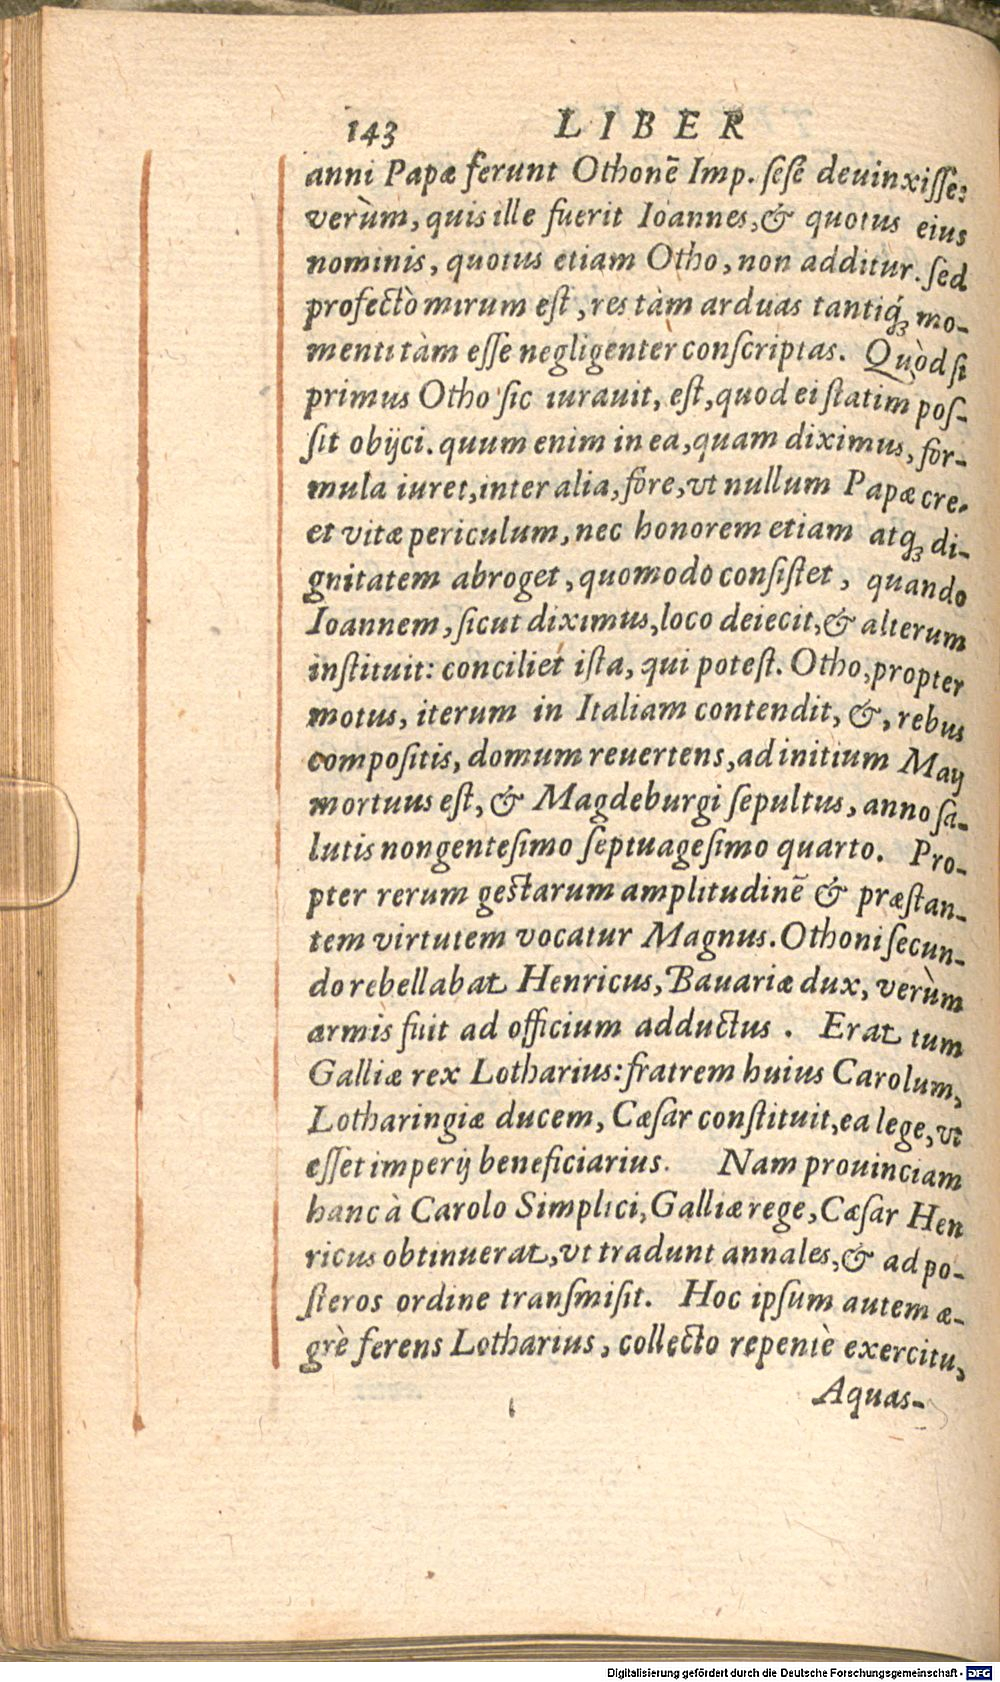 143 LIBER
anni Papæ ferunt Othonē Imp. ſeſe deuinxiſſe:
verùm, quis ille fuerit Ioannes, & quotus eius
nominis, quotus etiam Otho, non additur. ſed
profectò mirum eſt, res tàm arduas tantiq́ꝫ mo-
menti tàm eſſe negligenter conſcriptas. Quòd ſi
primus Otho ſic iurauit, eſt, quod ei ſtatim poſ-
ſit obijci. quum enim in ea, quam diximus, for-
mula iuret, inter alia, fore, vt nullum Papæ cre-
et vitæ periculum, nec honorem etiam atqꝫ di-
gnitatem abroget, quomodo conſiſtet, quando
Ioannem, ſicut diximus, loco deiecit, & alterum
inſtituit: conciliet iſta, qui poteſt. Otho, propter
motus, iterum in Italiam contendit, &, rebus
compoſitis, domum reuertens, ad initium Maij
mortuus eſt, & Magdeburgi ſepultus, anno ſa-
lutis nongenteſimo ſeptuageſimo quarto. Pro-
pter rerum geſtarum amplitudinē & præſtan-
tem virtutem vocatur Magnus. Othoni ſecun-
do rebellabat Henricus, Bauariæ dux, verùm
armis fuit ad officium adductus. Erat tum
Galliæ rex Lotharius: fratrem huius Carolum,
Lotharingiæ ducem, Cæſar conſtituit, ea lege, vt
eſſet imperij beneficiarius. Nam prouinciam
hanc à Carolo Simplici, Galliæ rege, Cæſar Hen
ricus obtinuerat, vt tradunt annales, & ad po-
ſteros ordine tranſmiſit. Hoc ipſum autem æ-
grè ferens Lotharius, collecto repentè exercitu,
Aquas-
Digitalisierung gefördert durch die Deutsche Forschungsgemeinschaft - DFG